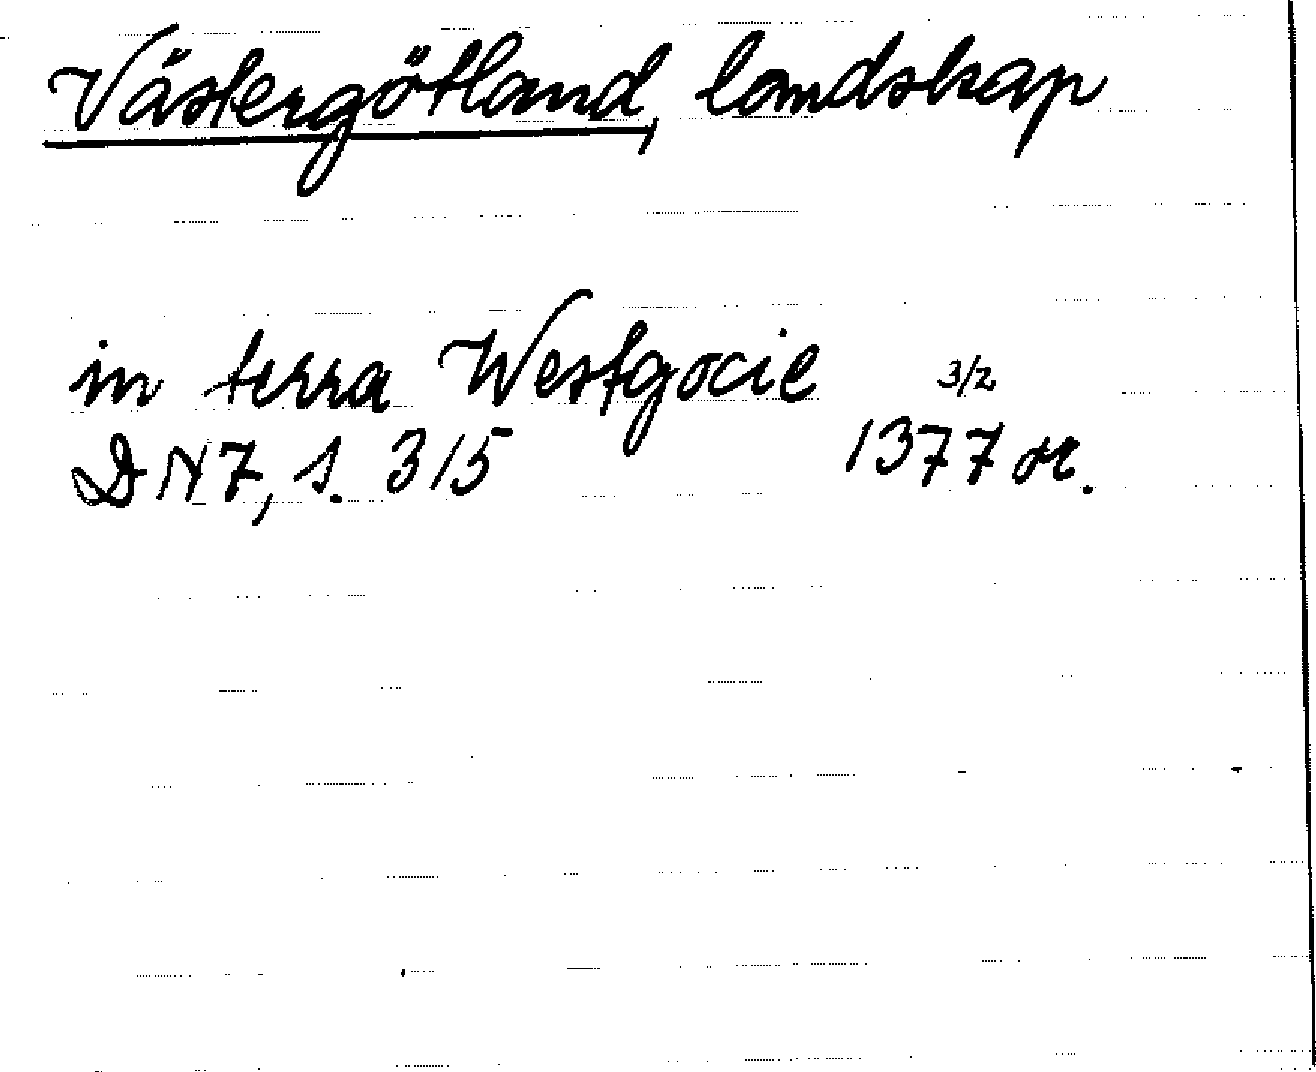 Västergötland, landskap
in terra Westgocie 3/2
DN 7, s. 315 1377 or.